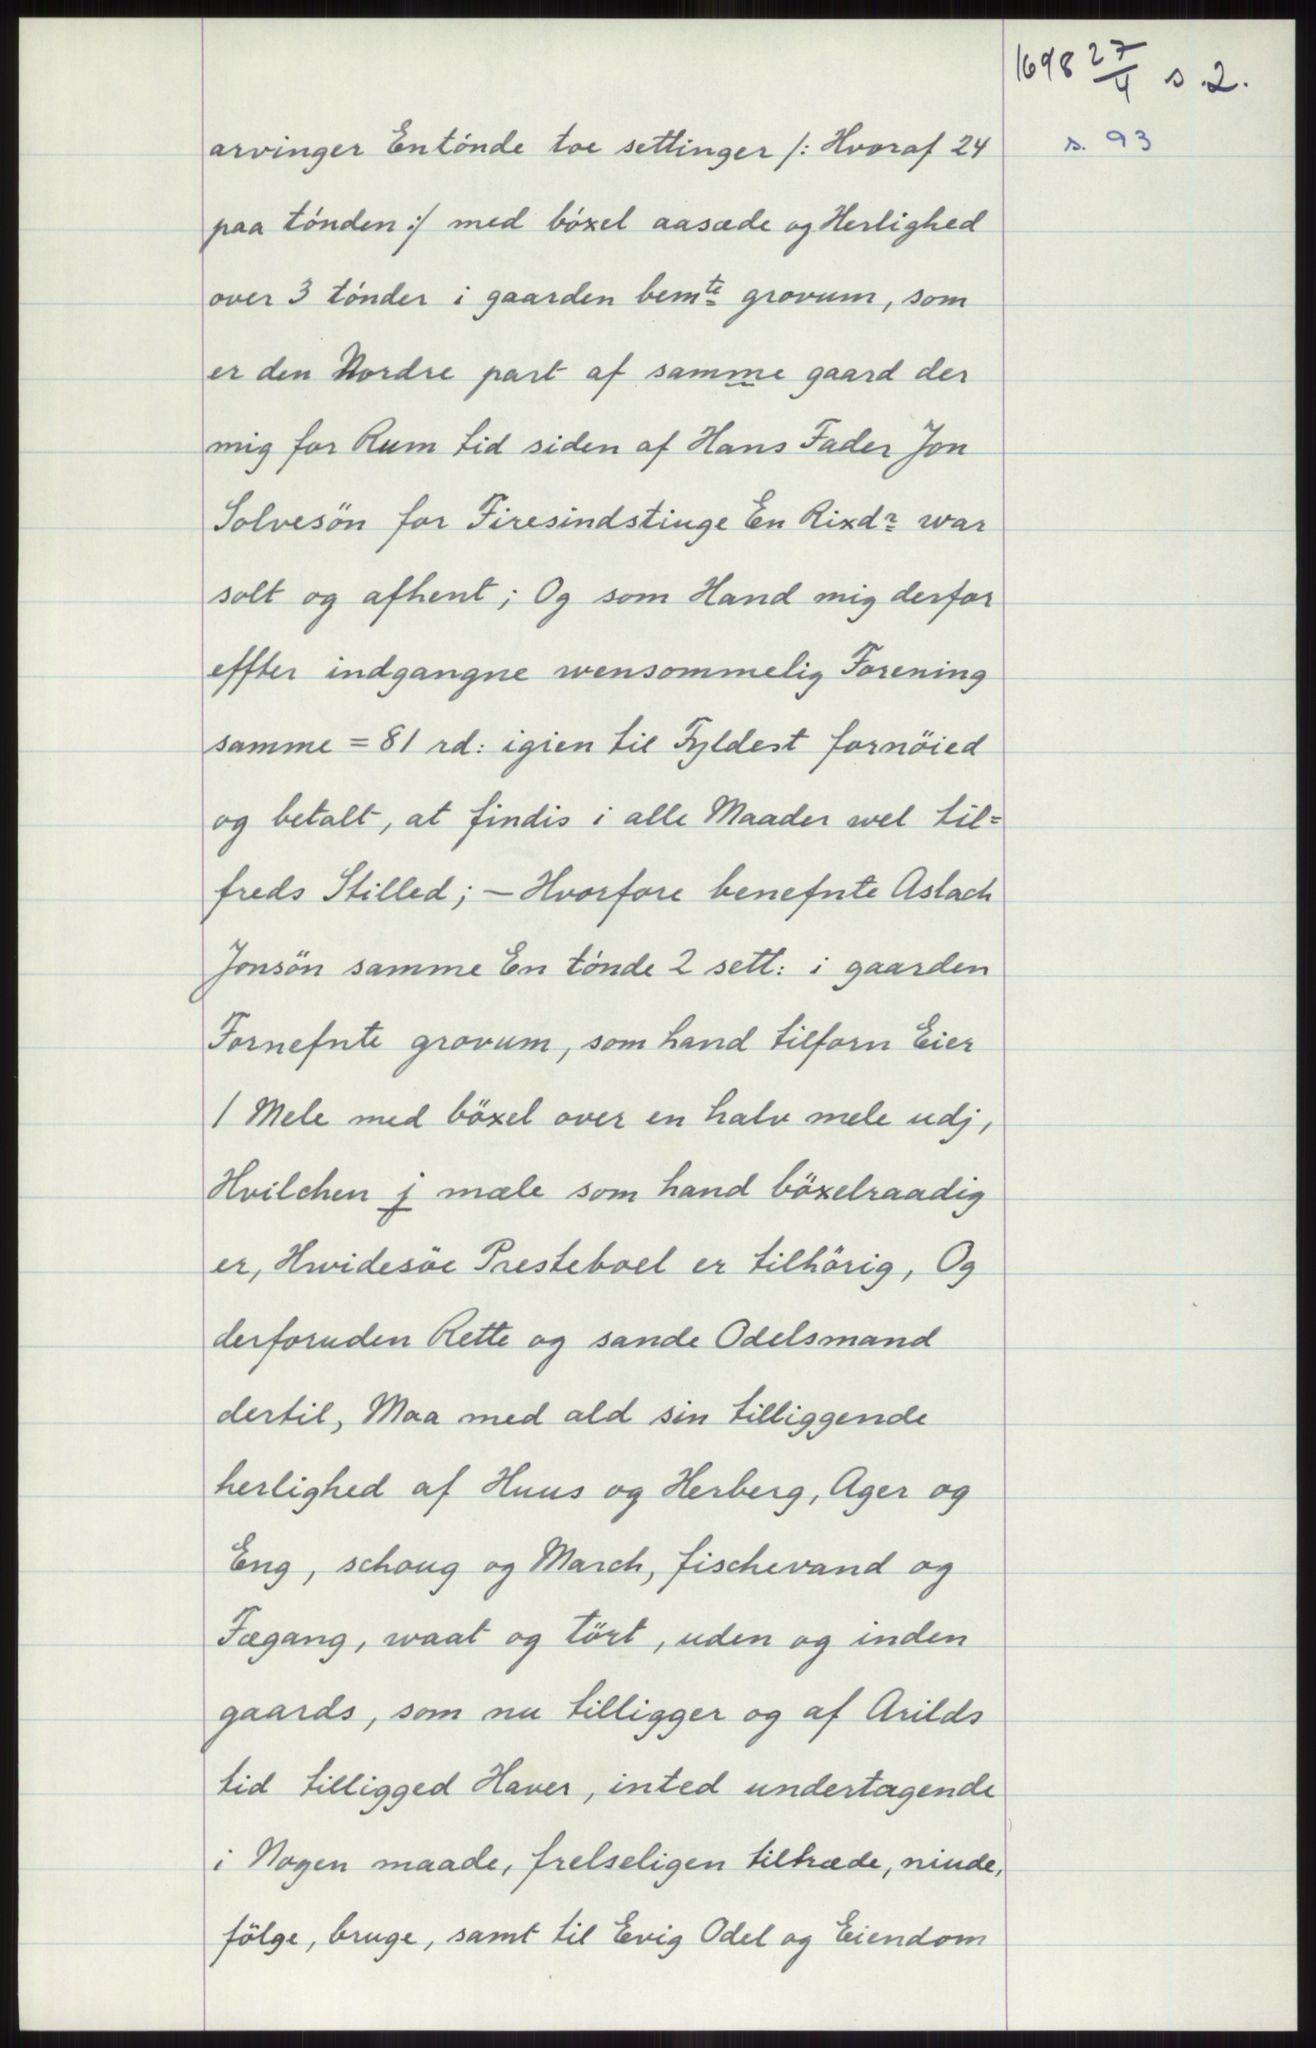 1698 27/4 s. 2.
s. 93
arvinger En tónde toe settinger /: Hvoraf 24
paa tónden :/ med bóxel aasæde og Herlighed
over 3 tónder i gaarden bemte grovum, som
er den Nordre part af samme gaard der
mig for Rum tid siden af Hans Fader Jon
Solvesön for Firesindstiuge En Rixdr war
solt og afhent; Og som Hand mig derfor
effter indgangne wensommelig Forening
samme = 81 rd: igien til Fyldest fornöied
og betalt, at findis i alle Maader wel til=
freds Stilled; - Hvorfore benefnte Aslach
Jonsön samme En tónde 2 sett: i gaarden
Fornefnte grovum, som hand tilforn Eier
1 Mele med böxel over en halv mele udj,
Hvilchen j mæle som hand böxelraadig
er, Hwidesöe Presteboel er tilhörig, Og
derforuden Rette og sande Odelsmand
dertil, Maa med ald sin tilliggende
herlighed af Huus og Herberg, Ager og
Eng, schoug og March, fischevand og
Fægang, waat og tört, uden og inden
gaards, som nu tilligger og af Arilds
tid tilligged Haver, inted undertagende
i Nogen maade, frelseligen tiltræde, niude,
fölge, bruge, samt til Evig Odel og Eiendom